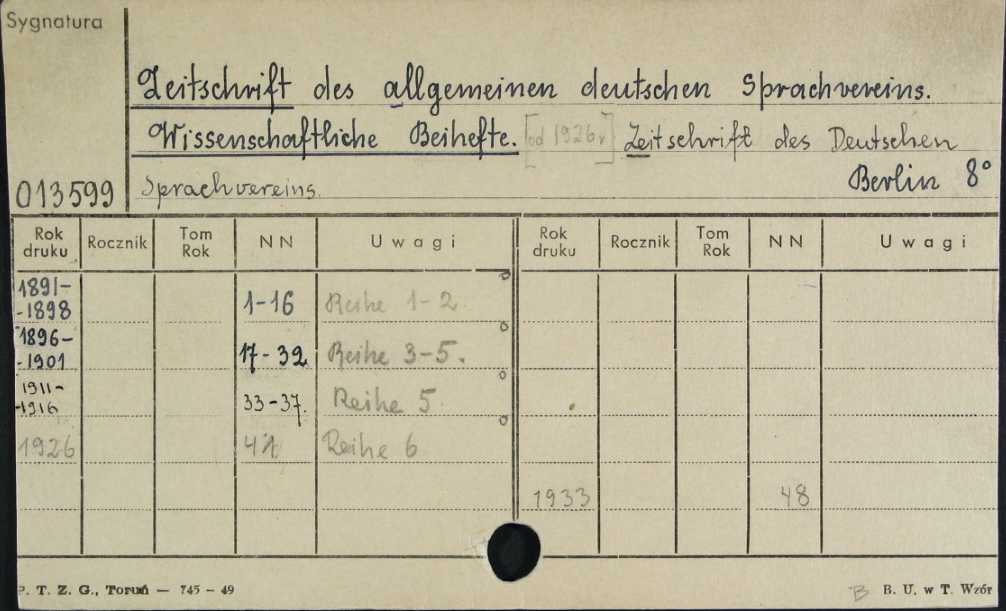 Sygnatura
Zeitschrift des allgemeinen deutschen Sprachvereins.
Wissenschaftliche Beihefte. [od 1926r] Zeitschrift des Deutschen
013599 Sprachvereins. Berlin 8°
Rok druku Rocznik Tom Rok NN Uwagi Rok druku Rocznik Tom Rok NN Uwagi
1891-
-1898 1-16 Reihe 1-2
1896-
-1901 17-32 Reihe 3-5.
1911-
-1916 33-37. Reihe 5
1926 Reihe 6
1933 48
P. T. Z. G., Toruń — 745 - 49 B B. U. w T. Wzór